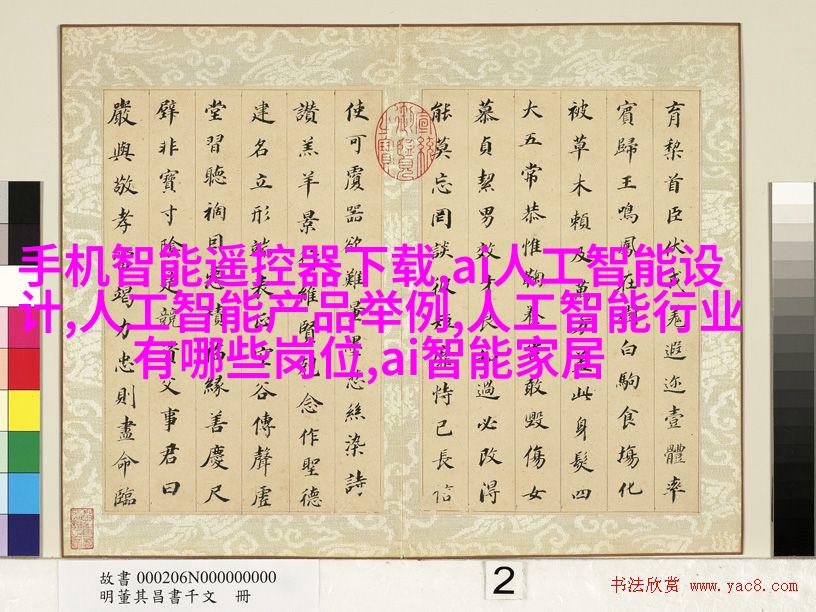 育黎首臣伏戎羌遐迩壹體率
賓歸王鳴鳳在樹白駒食塲化
被草木賴及萬方蓋此身髮四
大五常恭惟鞠養豈敢毀傷女
慕貞絜男效才良知過必改得
能莫忘罔談彼短靡恃己長信
使可覆器欲難量墨悲絲染詩
讚羔羊景行維賢剋念作聖德
建名立形端表正空谷傳聲虛
堂習聽禍因惡積福緣善慶尺
璧非寶寸陰是競資父事君曰
嚴與敬孝當竭力忠則盡命臨
手机智能遥控器下载,ai人工智能设
计,人工智能产品举例,人工智能行业
有哪些岗位,ai智能家居
故書 000206N000000000
明董其昌書千文 冊
2
书法欣赏 www.yac8.com